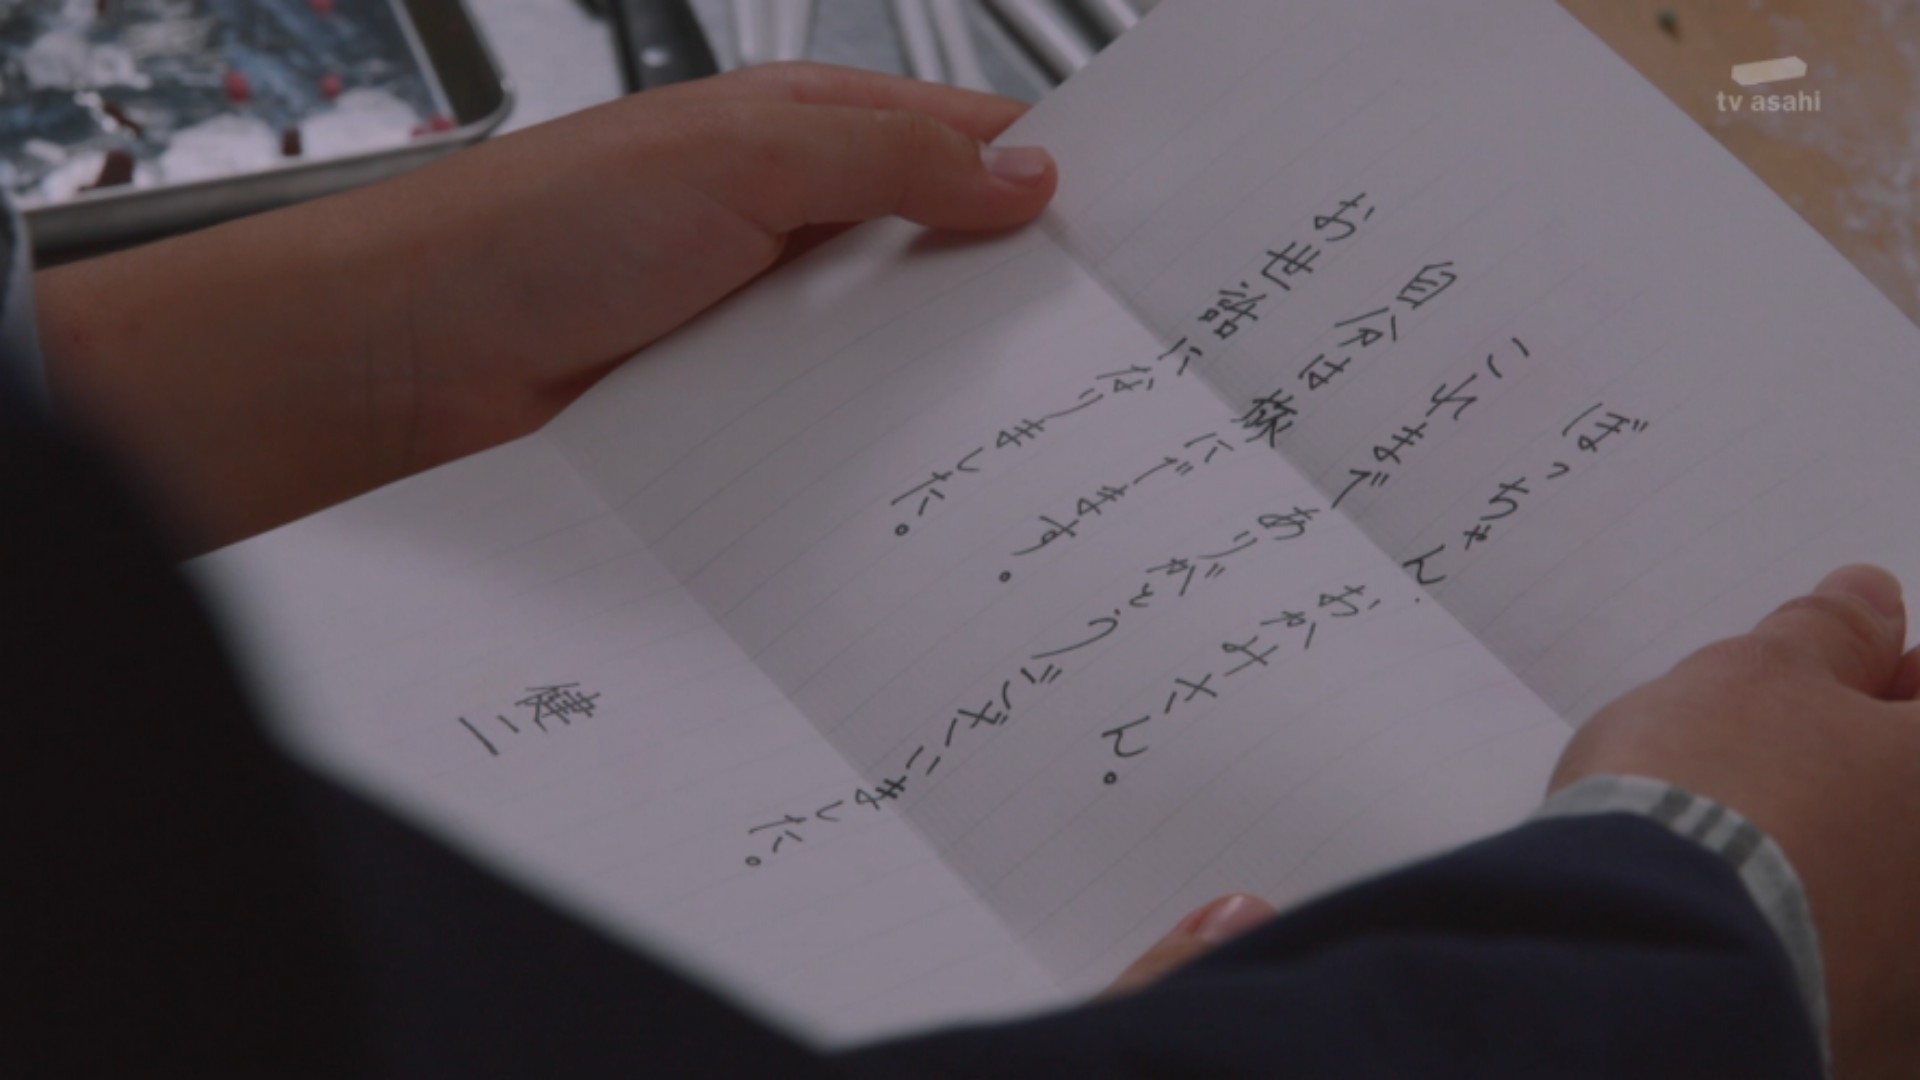 ぼっちゃん.おかみさん。
これまでありがとうございました。
自分は旅にでます。
お世話になりました。
健二
tv asahi